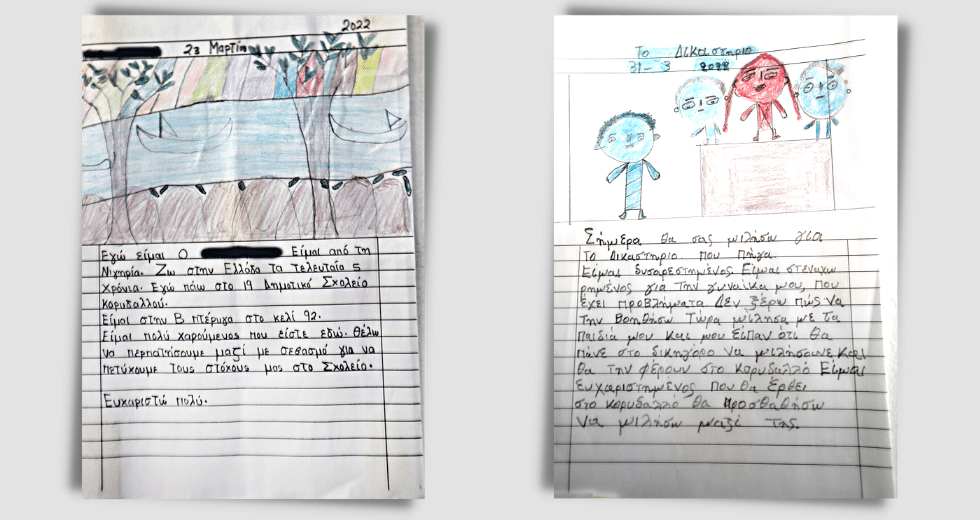 2022
23 Μαρτίη
Εγώ είμαι Ο Είμαι από τη
Νιγηρία. Ζω στην Ελλάδα Τα Τελευταία 5
χρόνια. Εγώ πάω στο 19 Δημοτικό Σχολείο
Κορυδαλλού.
Είμαι στην Β πτέρυγα στο κελί 92.
Είμαι πολύ χαρούμενος που είστε εδώ. Θέλω
να περπατήσουμε μαζί με σεβασμό για να
πετύχουμε τους στόχους μας στο Σχολείο.
Ευχαριστώ πολύ.
Το Δικαστηριο
31-3 2022
Σήμερα θα σας μιλήσω για
Το Δικαστηριο που πήγα.
Είμαι δυσαρεστημένος Είμαι στεναχω
ρημένος για Την γυναίκα μου, που
έχει προβλήματα Δεν ξέρω πώς να
Την Βοηθήσω Τώρα μίλησα με τα
παιδιά μου και μου Είπαν ότι θα
πάνε στο δικηγόρο να μιλήσουνε και
θα την φέρουν στο Κορυδαλλό Είμαι
Ευχαριστημένος που θα Ερθει
στο κορυδαλλό θα προσπαθήσω
να μιλήσω μαζί της.